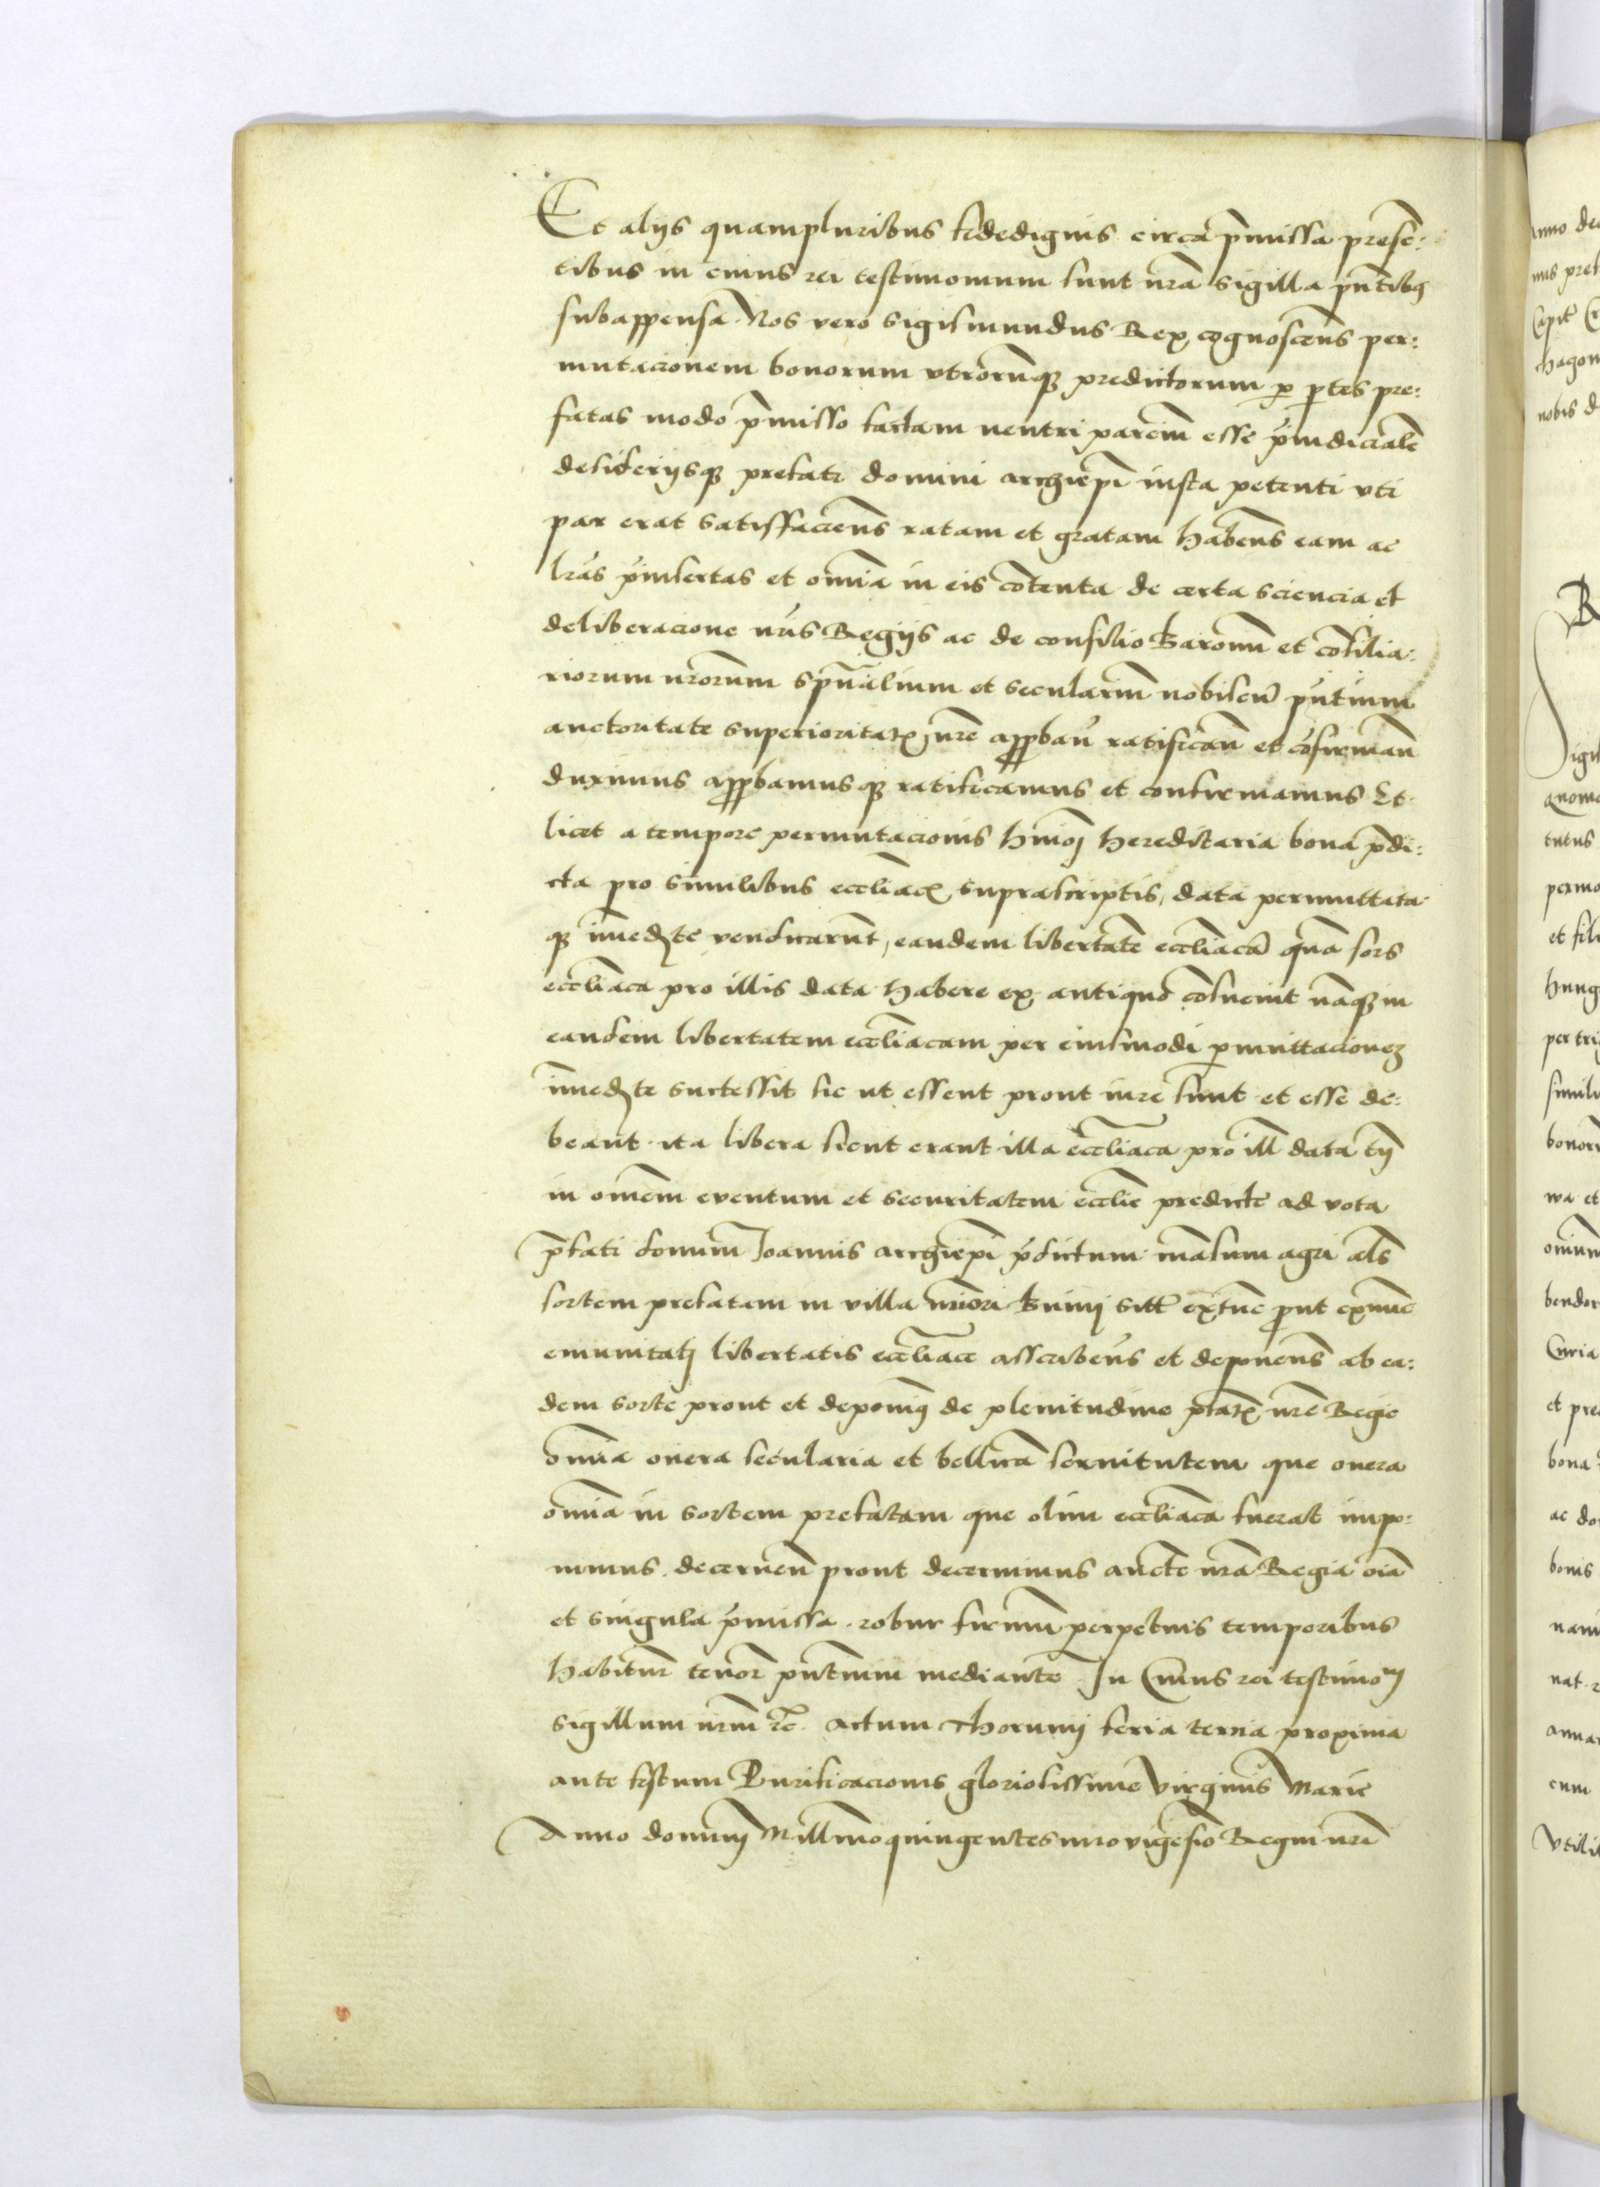 Et alijs quampluribus fidedignis circa p̄missa presē:
tibus in cuius rei testimonium sunt nr̄a sigilla pn̄tibꝫ
subappensa. Nos vero Sigismundus Rex cognoscens per:
mutacionem bonorum vtrorūqꝫ predictorum ꝑ ꝑtes pre:
fatas modo p̄misso factam neutri parciū esse p̄iudicialē
desiderijsqꝫ prefati domini archiepī iusta petenti vti
par erat satisfaciens ratam et gratam habens eam ac
lr̄as p̄insertas et om̄ia in eis cōtenta de certa sciencia et
deliberacione nr̄is Regijs ac de consilio Baronū et cōsilia:
riorum nr̄orum spūalium et seculariū nobiscū pn̄tium
auctoritate superioritatꝭ jure appꝛobaū ratificaū et cōfirmaū
duximus appꝛobamusqꝫ ratificamus et confirmamus Et
licet a tempore permutacionis hmōi hereditaria bona p̄di:
cta pro similibus eccliacꝭ suprascriptis, data permuttata
qꝫ īmedꝛte vendicarūt, eandem libertatē eccliacā quā sors
eccliaca pro illis data habere ex antiquo cōsueuit nāqꝫ in
eandem libertatem eccliacam per eiusmodi ꝑmuttacionē
īmedꝛte successit sic ut essent prout iure sunt et esse de:
beant ita libera sicut erant illa eccliaca pro ill̄ data tn̄
in om̄em euentum et securitatem eccl̄ie predicte ad vota
p̄fati domini Joannis archiepī p̄dictum mansum agri al̄s
sortem prefatam in villa mīori Bunij sitt̄ extūc ꝓut exnūc
emunitatj libertatis eccliace asscribens et deponens ab ea:
dem sorte prout et deponimꝰ de plenitudine ptātꝭ nr̄e Regie
om̄ia onera secularia et bellicā seruitutem que onera
om̄ia in sortem prefatam que olim eccliaca fuerat impo:
nimus. decerneñ prout decernimus auctē nr̄a Regia oīa
et singula p̄missa. robur firmū perpetuis temporibus
habitur̄ tenor̄ pn̄tium mediante. In Cuius rei testimoⁿⁱ
sigillum nrm̄ ꝛc̄. Actum Thorunij feria tercia proxima
ante festum Purificacionis gloriosissime Virginis Marie
Anno domini Millīmoquingentesimovigesīo Regni nr̄i